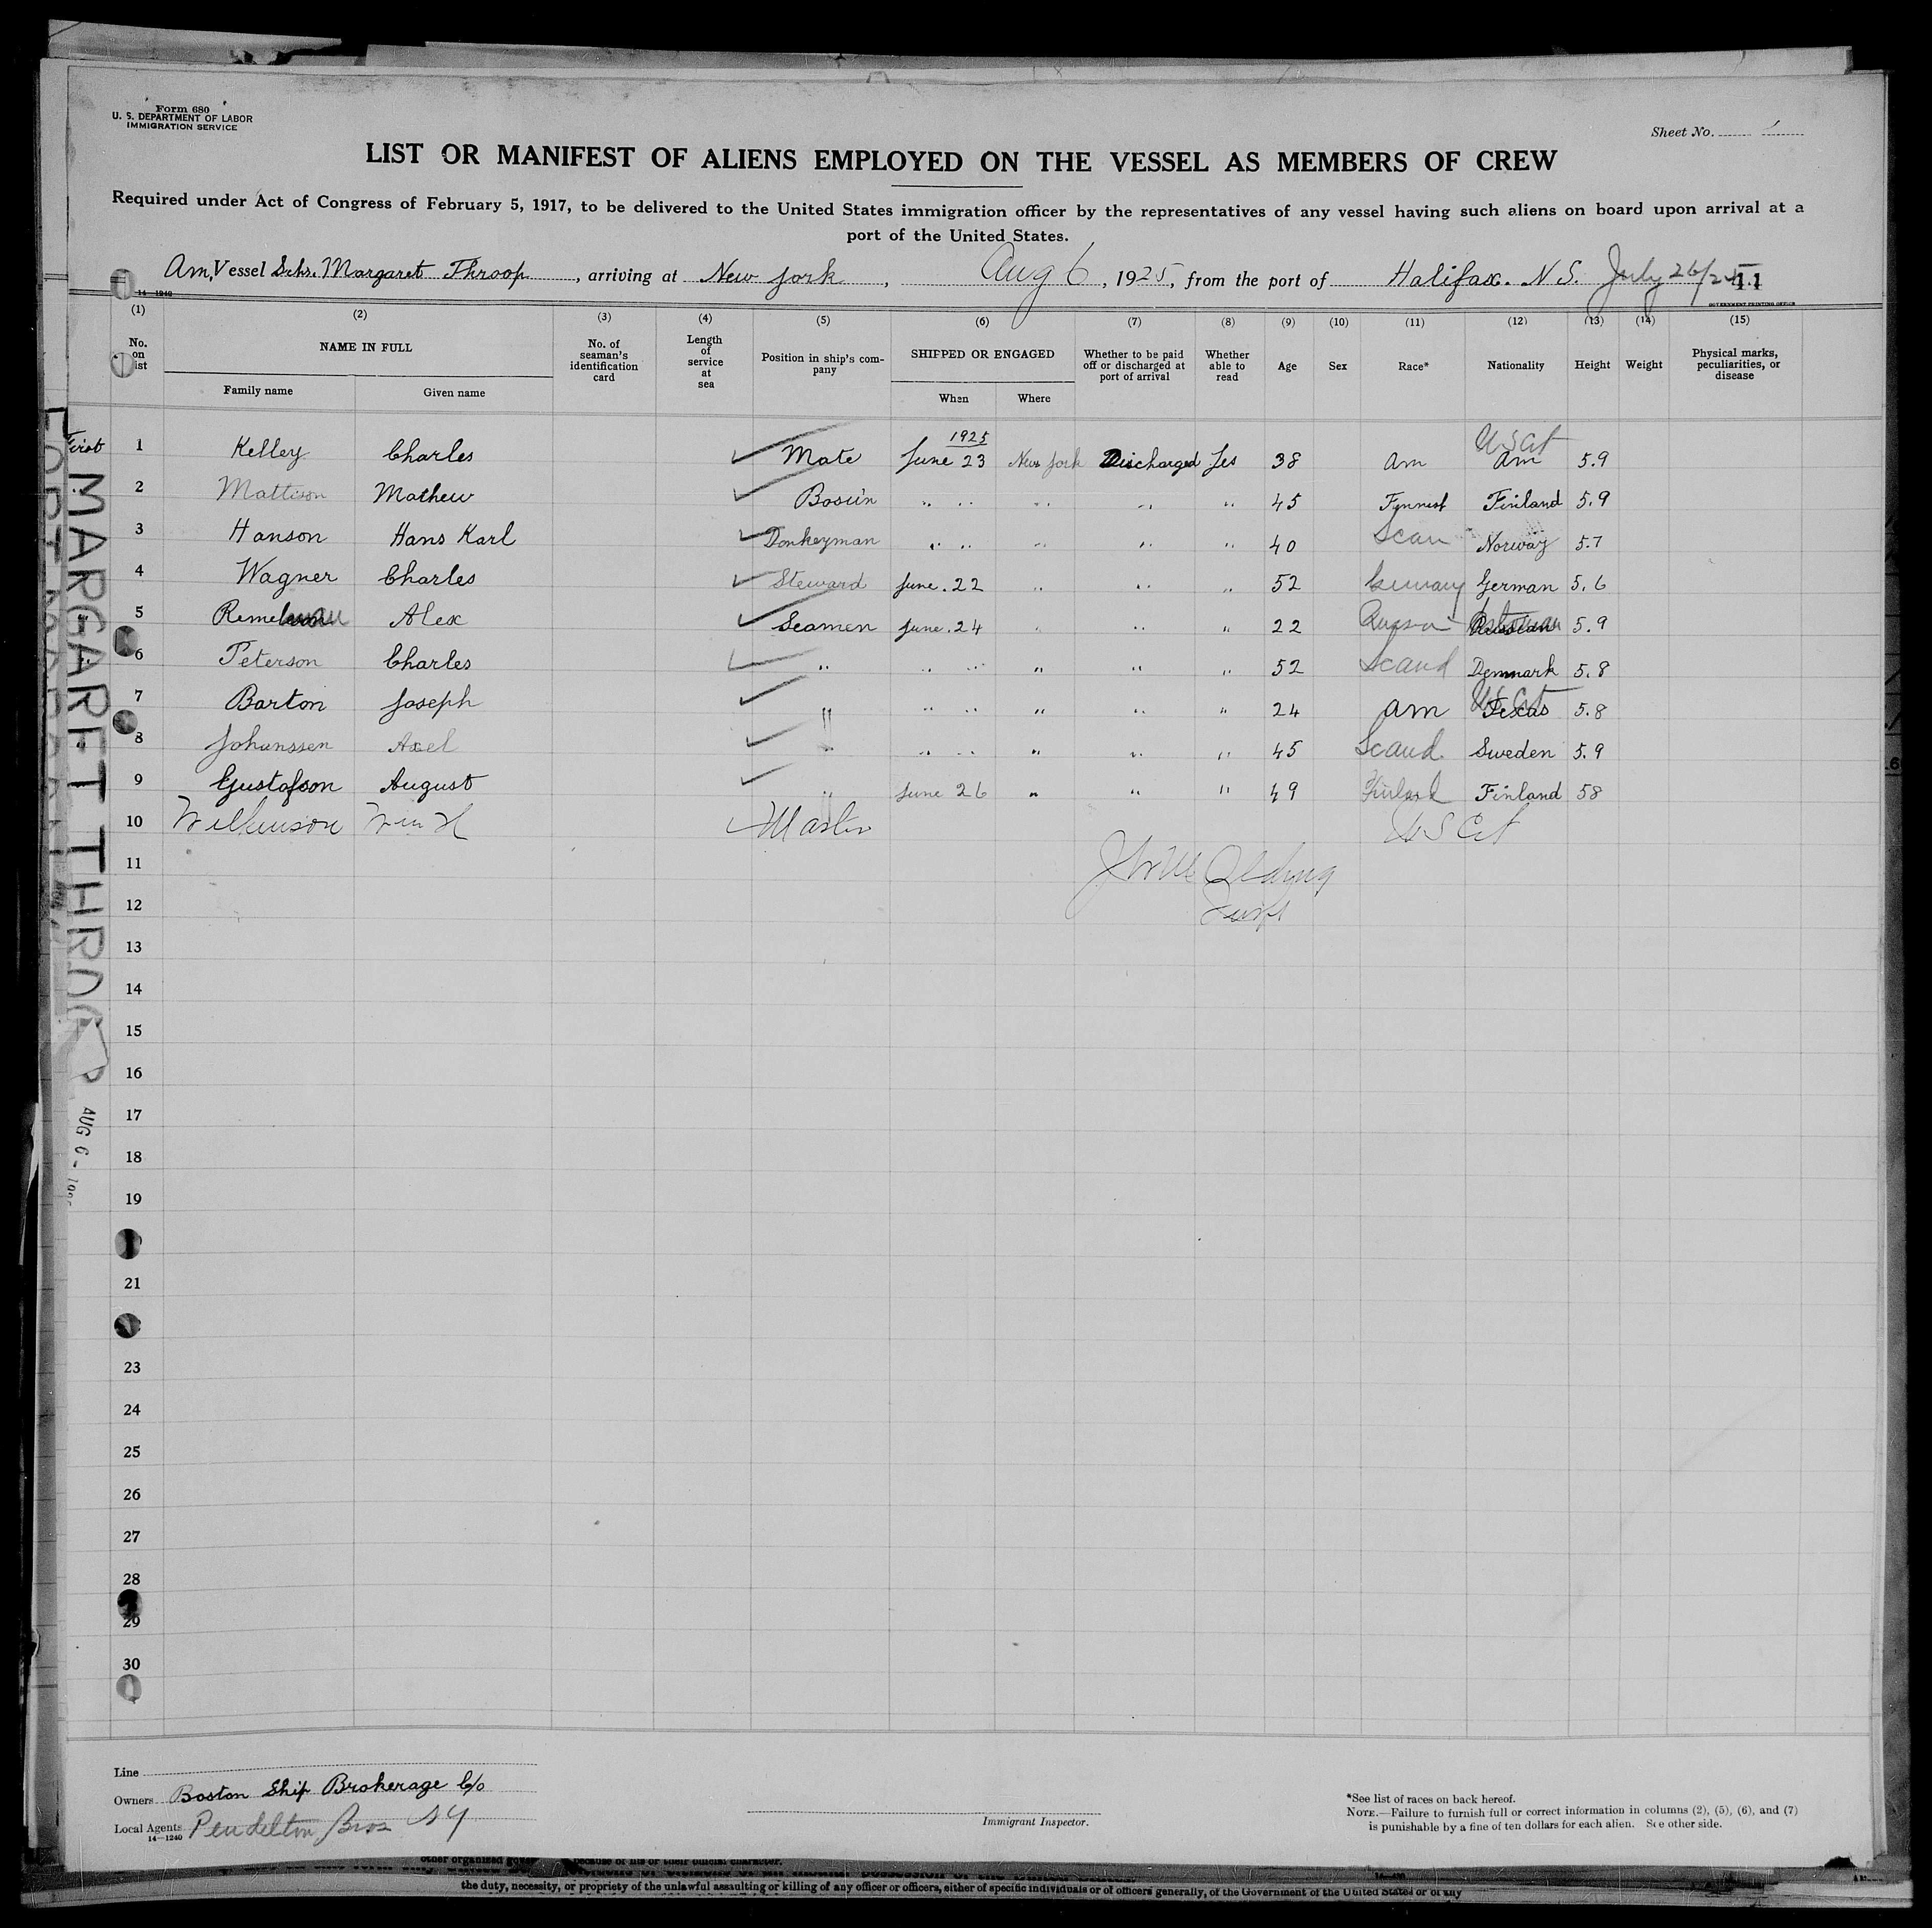 Form 680
U. S. DEPARTMENT OF LABOR
IMMIGRATION SERVICE
Sheet No. 1
LIST OR MANIFEST OF ALIENS EMPLOYED ON THE VESSEL AS MEMBERS OF CREW
Required under Act of Congress of February 5, 1917, to be delivered to the United States immigration officer by the representatives of any vessel having such aliens on board upon arrival at a
port of the United States.
Am. Vessel Schr. Margaret Throop, arriving at New York, Aug 6, 1925, from the port of Halifax. N S. July 26/25 11
14—1240
GOVERNMENT PRINTING OFFICE
(1) (2) (3) (4) (5) (6) (7) (8) (9) (10) (11) (12) (13) (14) (15)
No. on list NAME IN FULL Family name Given name No. of seaman's identification card Length of service at sea Position in ship's company SHIPPED OR ENGAGED When Where Whether to be paid off or discharged at port of arrival Whether able to read Age Sex Race* Nationality Height Weight Physical marks, peculiarities, or disease
1925
First 1 Kelley Charles Mate June 23 New York Discharged Yes 38 Am US Cit Am 5.9
2 Mattison Mathew Bosùn " " " " " 45 Fynnest Finland 5.9
3 Hanson Hans Karl Donkeyman " " " " " 40 Scan Norway 5.7
4 Wagner Charles Steward June.22 " " " 52 Germany German 5.6
5 Alex Seamen June.24 " " " 22 Russian 5.9
6 Peterson Charles " " " " " " 52 Scand Denmark 5.8
7 Barton Joseph " " " " " " 24 am US Cit Texas 5.8
8 Johanssen Axel " " " " " " 45 Scand. Sweden 5.9
9 Gustafson August " June 26 " " " 49 Finland Finland 58
10 Wilkinson Wm H Master US Cit
11
12
13
14
15
16
17
18
19
21
23
24
25
26
27
28
29
30
MARGARET THROOP
AUG 6 - 192
Line
Owners Boston Ship Brokerage C/o
Local Agents Pendelton Bros NY
14—1240
Immigrant Inspector.
*See list of races on back hereof.
NOTE.—Failure to furnish full or correct information in columns (2), (5), (6), and (7)
is punishable by a fine of ten dollars for each alien. See other side.
because of his or their official character.
the duty, necessity, or propriety of the unlawful assaulting or killing of any officer or officers, either of specific individuals or of officers generally, of the Government of the United States or of any